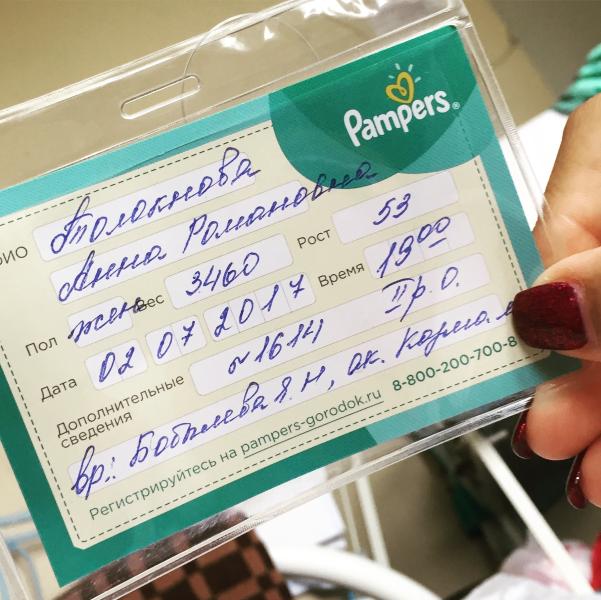 Pampers®
ФИО Толокнова
Анна Романовна
Пол жен Вес 3460 Рост 53
Дата 02 07 2017 Время 19 00
Дополнительные сведения ~1614 II р. О.
вр.: Бобылева Я. Н, ак.
Регистрируйтесь на pampers-gorodok.ru 8-800-200-700-8